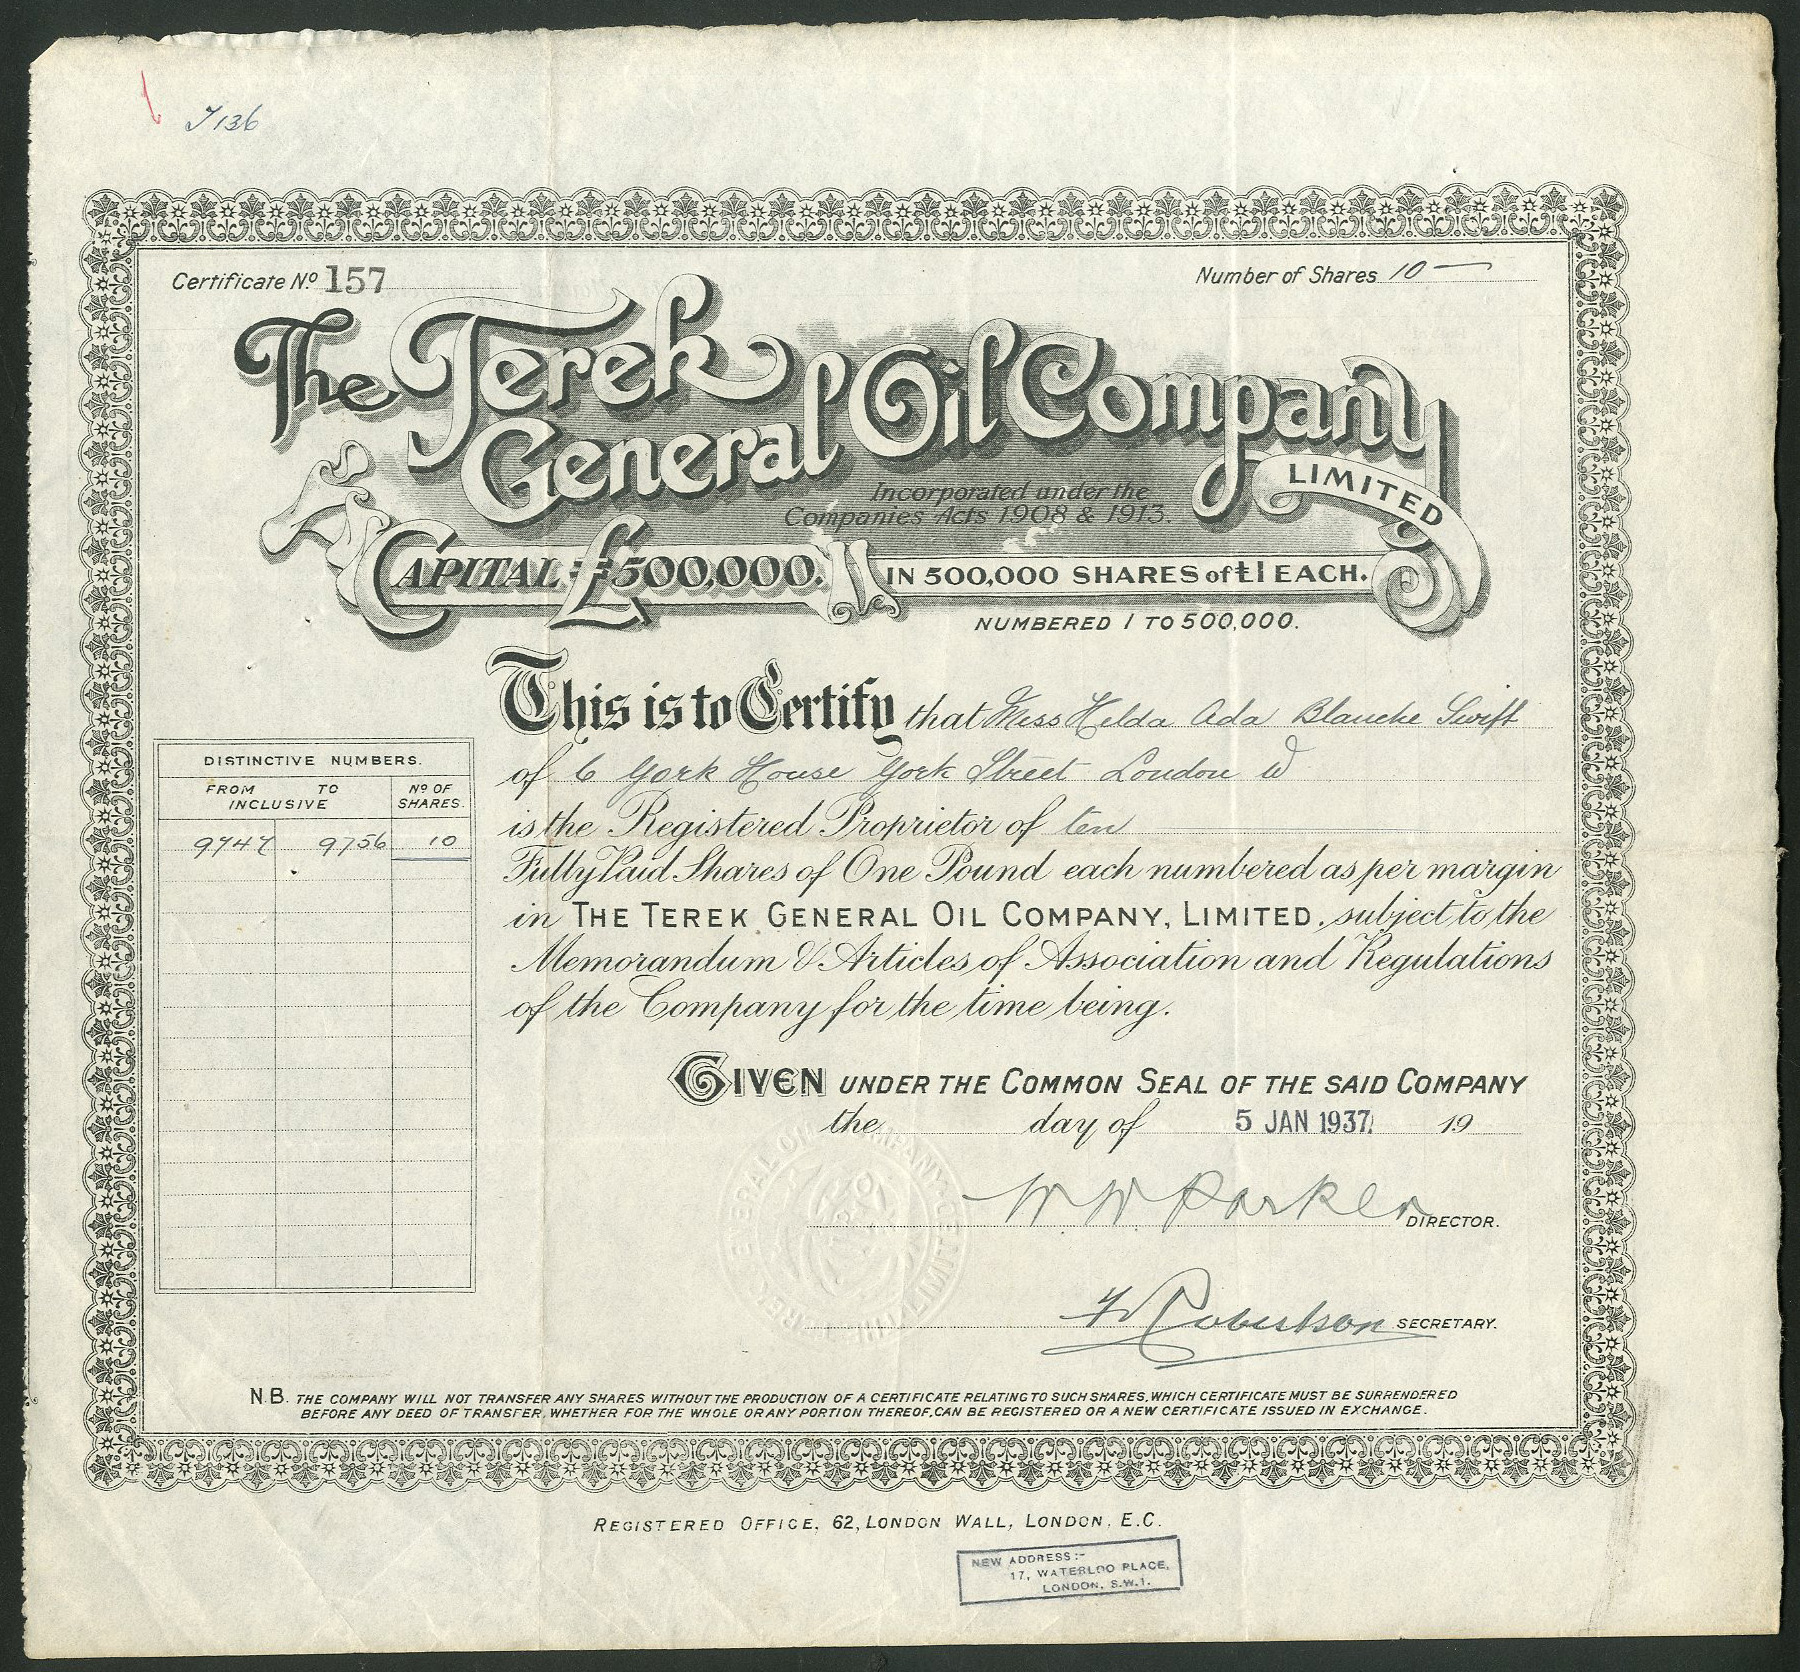 T136
Certificate Nº 157
Number of Shares 10 —
The Terek
General Oil Company
LIMITED
Incorporated under the
Companies Acts 1908 & 1913.
CAPITAL £500,000. IN 500,000 SHARES of £1 EACH.
NUMBERED 1 TO 500,000.
This is to Certify that Miss Hilda Ada Blanche Swift
of 6 York House York Street London W
is the Registered Proprietor of ten
Fully Paid Shares of One Pound each numbered as per margin
in THE TEREK GENERAL OIL COMPANY, LIMITED, subject to the
Memorandum & Articles of Association and Regulations
of the Company for the time being.
DISTINCTIVE NUMBERS.
FROM TO Nº OF
INCLUSIVE SHARES.
9747 9756 10
GIVEN UNDER THE COMMON SEAL OF THE SAID COMPANY
the day of 5 JAN 1937 19
W W Parker DIRECTOR.
Robertson SECRETARY.
THE TEREK GENERAL OIL COMPANY LIMITED
N.B. THE COMPANY WILL NOT TRANSFER ANY SHARES WITHOUT THE PRODUCTION OF A CERTIFICATE RELATING TO SUCH SHARES, WHICH CERTIFICATE MUST BE SURRENDERED
BEFORE ANY DEED OF TRANSFER, WHETHER FOR THE WHOLE OR ANY PORTION THEREOF, CAN BE REGISTERED OR A NEW CERTIFICATE ISSUED IN EXCHANGE.
REGISTERED OFFICE, 62, LONDON WALL, LONDON, E.C.
NEW ADDRESS:-
17, WATERLOO PLACE,
LONDON, S.W.1.